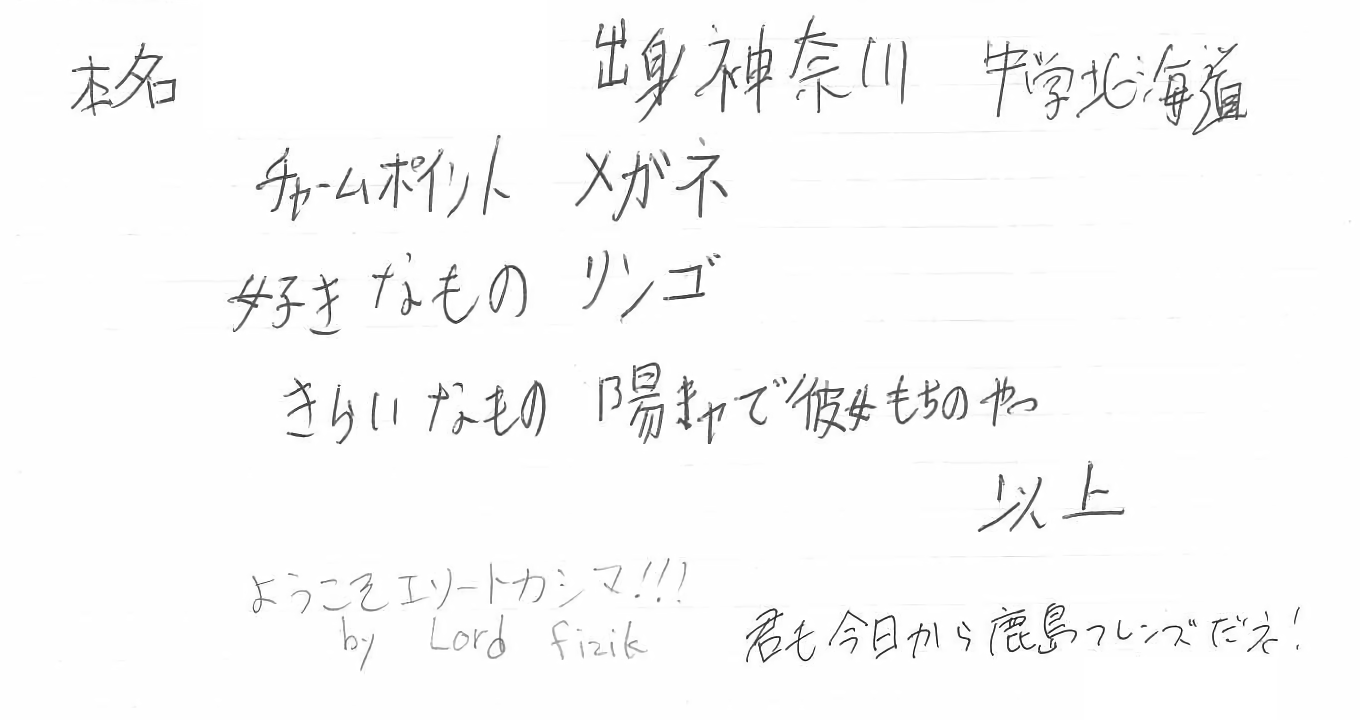 本名 出身神奈川 中学北海道
チャームポイント メガネ
好きなもの リンゴ
きらいなもの 陽キャで彼女もちのやつ
以上
ようこそエリートカシマ!!!
by Lord fizik
君も今日から鹿島フレンズだネ!